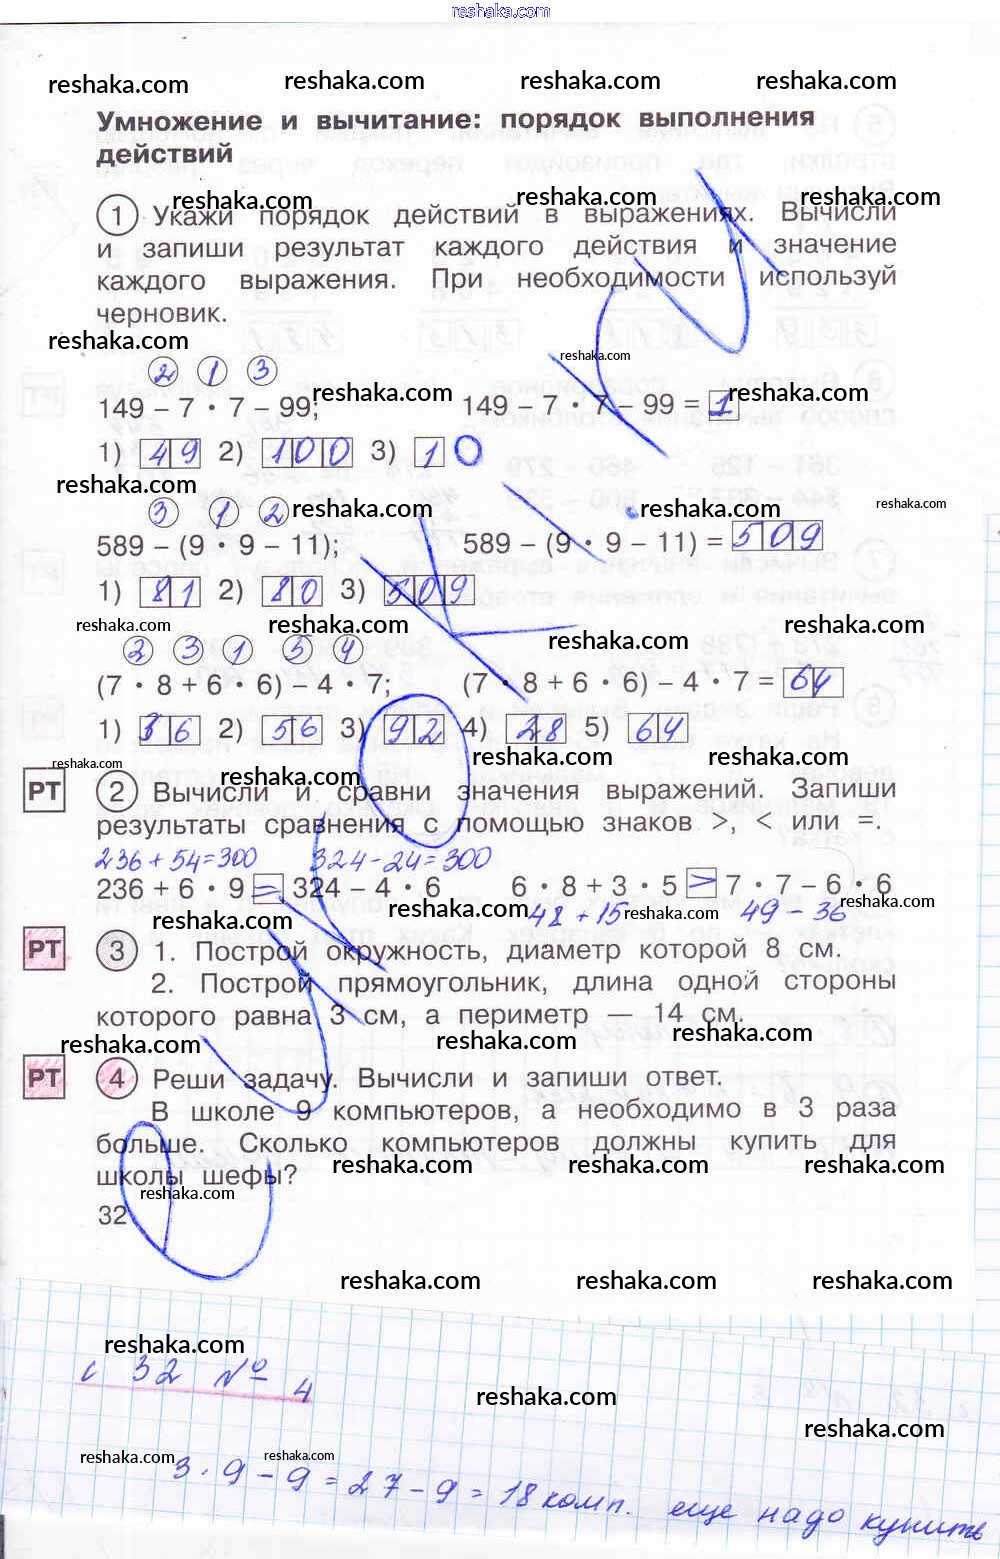 reshaka.com
reshaka.com reshaka.com reshaka.com reshaka.com
Умножение и вычитание: порядок выполнения
действий
reshaka.com reshaka.com reshaka.com
1 Укажи порядок действий в выражениях. Вычисли
и запиши результат каждого действия и значение
каждого выражения. При необходимости используй
черновик.
reshaka.com reshaka.com
2 1 3
149 – 7 · 7 – 99; reshaka.com 149 – 7 · 7 – 99 = 1 reshaka.com
1) 49 2) 100 3) 1 0
reshaka.com reshaka.com reshaka.com
3 1 2 reshaka.com reshaka.com reshaka.com
589 – (9 · 9 – 11); 589 – (9 · 9 – 11) = 509
1) 81 2) 80 3) 509
reshaka.com reshaka.com reshaka.com reshaka.com
2 3 1 5 4
(7 · 8 + 6 · 6) – 4 · 7; (7 · 8 + 6 · 6) – 4 · 7 = 64
1) 36 2) 56 3) 92 4) 28 5) 64
reshaka.com reshaka.com reshaka.com reshaka.com
РТ 2 Вычисли и сравни значения выражений. Запиши
результаты сравнения с помощью знаков >, < или =.
236 + 54 = 300 324 – 24 = 300
236 + 6 · 9 = 324 – 4 · 6 6 · 8 + 3 · 5 > 7 · 7 – 6 · 6
reshaka.com reshaka.com 48 + 15 reshaka.com 49 – 36 reshaka.com
РТ 3 1. Построй окружность, диаметр которой 8 см.
2. Построй прямоугольник, длина одной стороны
которого равна 3 см, а периметр — 14 см.
reshaka.com reshaka.com reshaka.com
РТ 4 Реши задачу. Вычисли и запиши ответ.
В школе 9 компьютеров, а необходимо в 3 раза
больше. Сколько компьютеров должны купить для
школы шефы?
reshaka.com reshaka.com reshaka.com reshaka.com
32
reshaka.com reshaka.com reshaka.com
reshaka.com
с 32 № 4
reshaka.com
reshaka.com
reshaka.com reshaka.com
3 · 9 – 9 = 27 – 9 = 18 комп. еще надо купить